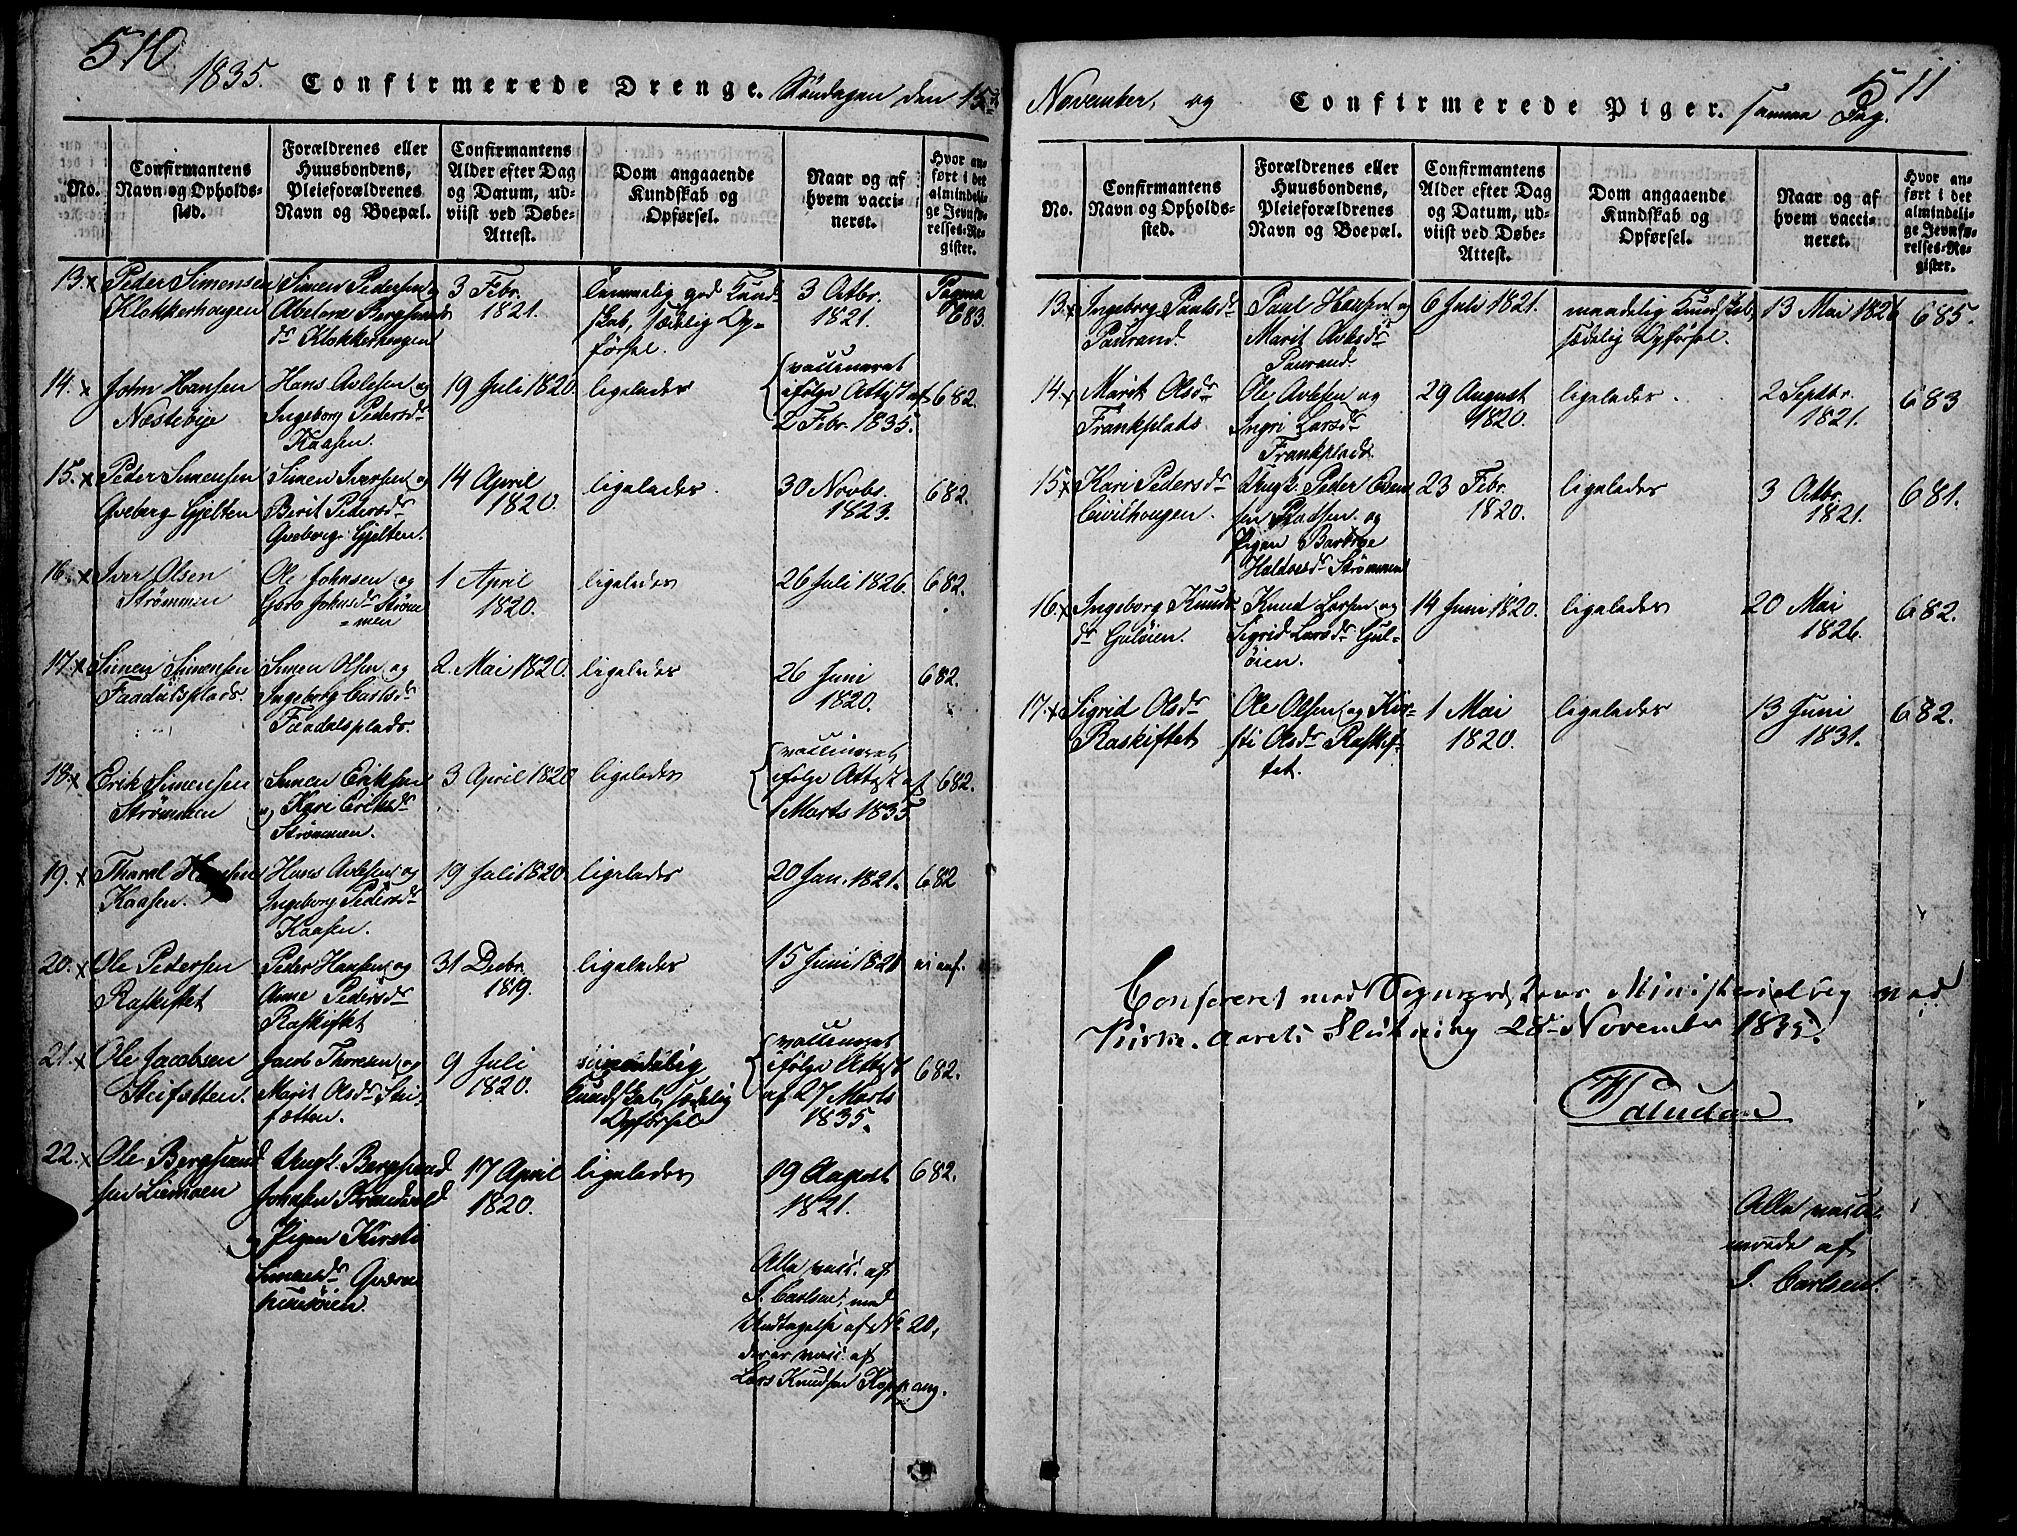 510
1835. Confirmerede Drenge. Søndagen den 15de
No.
Confirmantens
Navn og Opholds-
sted.
Forældrenes eller
Huusbondens,
Pleieforældrenes
Navn og Boepæl.
Confirmantens
Alder efter Dag
og Datum, ud-
viist ved Døbe-
Attest.
Dom angaaende
Kundskab og
Opførsel.
Naar og af
hvem vacci-
neret.
Hvor an-
ført i det
almindeli-
ge Jevnfø-
relses-Re-
gister.
13. x Peder Simensen
Klokkerhougen
Simen Pedersen og
Abelone Bergsvends
dr Klokkerhougen
3 Febr.
1821.
temmelig god Kund-
skab, sædelig Op-
førsel.
3 Octbr.
1821.
Pagina
683.
14. x John Hansen
Næstebye
Hans Avlesen og
Ingeborg Pedersdr
Kaasen.
19 Juli 1820.
ligeledes
vaccineret
ifølge Attest af
2 Febr. 1835.
682.
15. x Peder Simensen
Qveberg-Gjelten
Simen Iversen og
Berit Pedersdr
Qveberg-Gjelten.
14 April
1820.
ligeledes.
30 Novbr.
1823.
682.
16. x Iver Olsen
Strømmen
Ole Johnsen og
Goro Johnsdr Strøm
=men
1 April
1820.
ligeledes
26 Juli 1826.
682.
17. x Simen Simensen
Faadalsplads.
Simen Olsen og
Ingeborg Carlsdr
Faadalsplads.
2. Mai 1820.
ligeledes
26 Juni
1820.
682.
18. x Erik Simensen
Strømmen
Simen Eriksen
og Kari Eriksdr
Strømmen.
3 April 1820
ligeledes
vaccineret
ifølge Attest af
1 Marts 1835
682.
19. x Thorval Hansen
Kaasen.
Hans Avlesen og
Ingeborg Pedersdr
Kaasen.
19 Juli 1820.
ligeledes
20 Jan. 1821.
682
20. x Ole Pedersen
Raskiftet
Peder Hansen og
Anne Pedersdr
Raskiftet
31 Decbr.
1819.
ligeledes
15 Juni 1821
ei anf.
21. x Ole Jacobsen
Steifætten.
Jacob Thoresen og
Marit Olsdr Stei-
fætten.
9 Juli
1820.
maadelig
Kundskab, sædelig
Opførsel
vaccineret
ifølge Attest
af 27 Marts
1835.
682.
22. x Ole Bergsvend
sen Liemoen
Ungk. Bergsvend
Johnsen Brændvold
og Pigen Kirsti
Simensdr Qværn
17 April
1820.
ligeledes
19 August
1821.
682.
Alle vacc. af
S. Carlsen, med
Undtagelse af No 20,
der er vacc. af
Lars Knudsen Koppang.
511
November, og Confirmerede Piger. samme Dag.
No.
Confirmantens
Navn og Opholds-
sted.
Forældrenes eller
Huusbondens,
Pleieforældrenes
Navn og Boepæl.
Confirmantens
Alder efter Dag
og Datum, ud-
viist ved Døbe-
Attest.
Dom angaaende
Kundskab og
Opførsel.
Naar og af
hvem vacci-
neret.
Hvor an-
ført i det
almindeli-
ge Jevnfø-
relses-Re-
gister.
13. x Ingeborg Paulsdr
Paurand.
Paul Hansen og
Marit Olsdr
Paurand.
6 Juli 1821.
maadelig Kundskab,
sædelig Opførsel.
13 Mai 1826
685.
14. x Marit Olsdr
Frankplads
Ole Avlesen og
Ingri Larsdr
Frankplads
29 August
1820.
ligeledes.
2 Septbr.
1821.
683
15. x Kari Pedersdr
Qvilhougen.
Ungk. Peder Esben
sen Raasen. og
Pigen Barbroe
Haldorsdr Strømmen
23 Febr.
1820.
ligeledes
3 Octbr.
1821.
681.
16. x Ingeborg Knuds
dr Guløien.
Knud Larsen og
Sigrid Larsdr Gul-
øien.
14 Juni 1820.
ligeledes
20 Mai
1826.
682.
17. x Sigrid Olsdr
Raskiftet
Ole Olsen og Kir-
sti Olsdr Raskif-
tet.
1 Mai
1820.
ligeledes
13 Juni
1831.
682.
Confereret med Sognepræstens Ministerialbog ved
Kirke-Aarets Slutning 28de November 1835.
Paludan
Alle vacci-
nerede af
S. Carlsen.